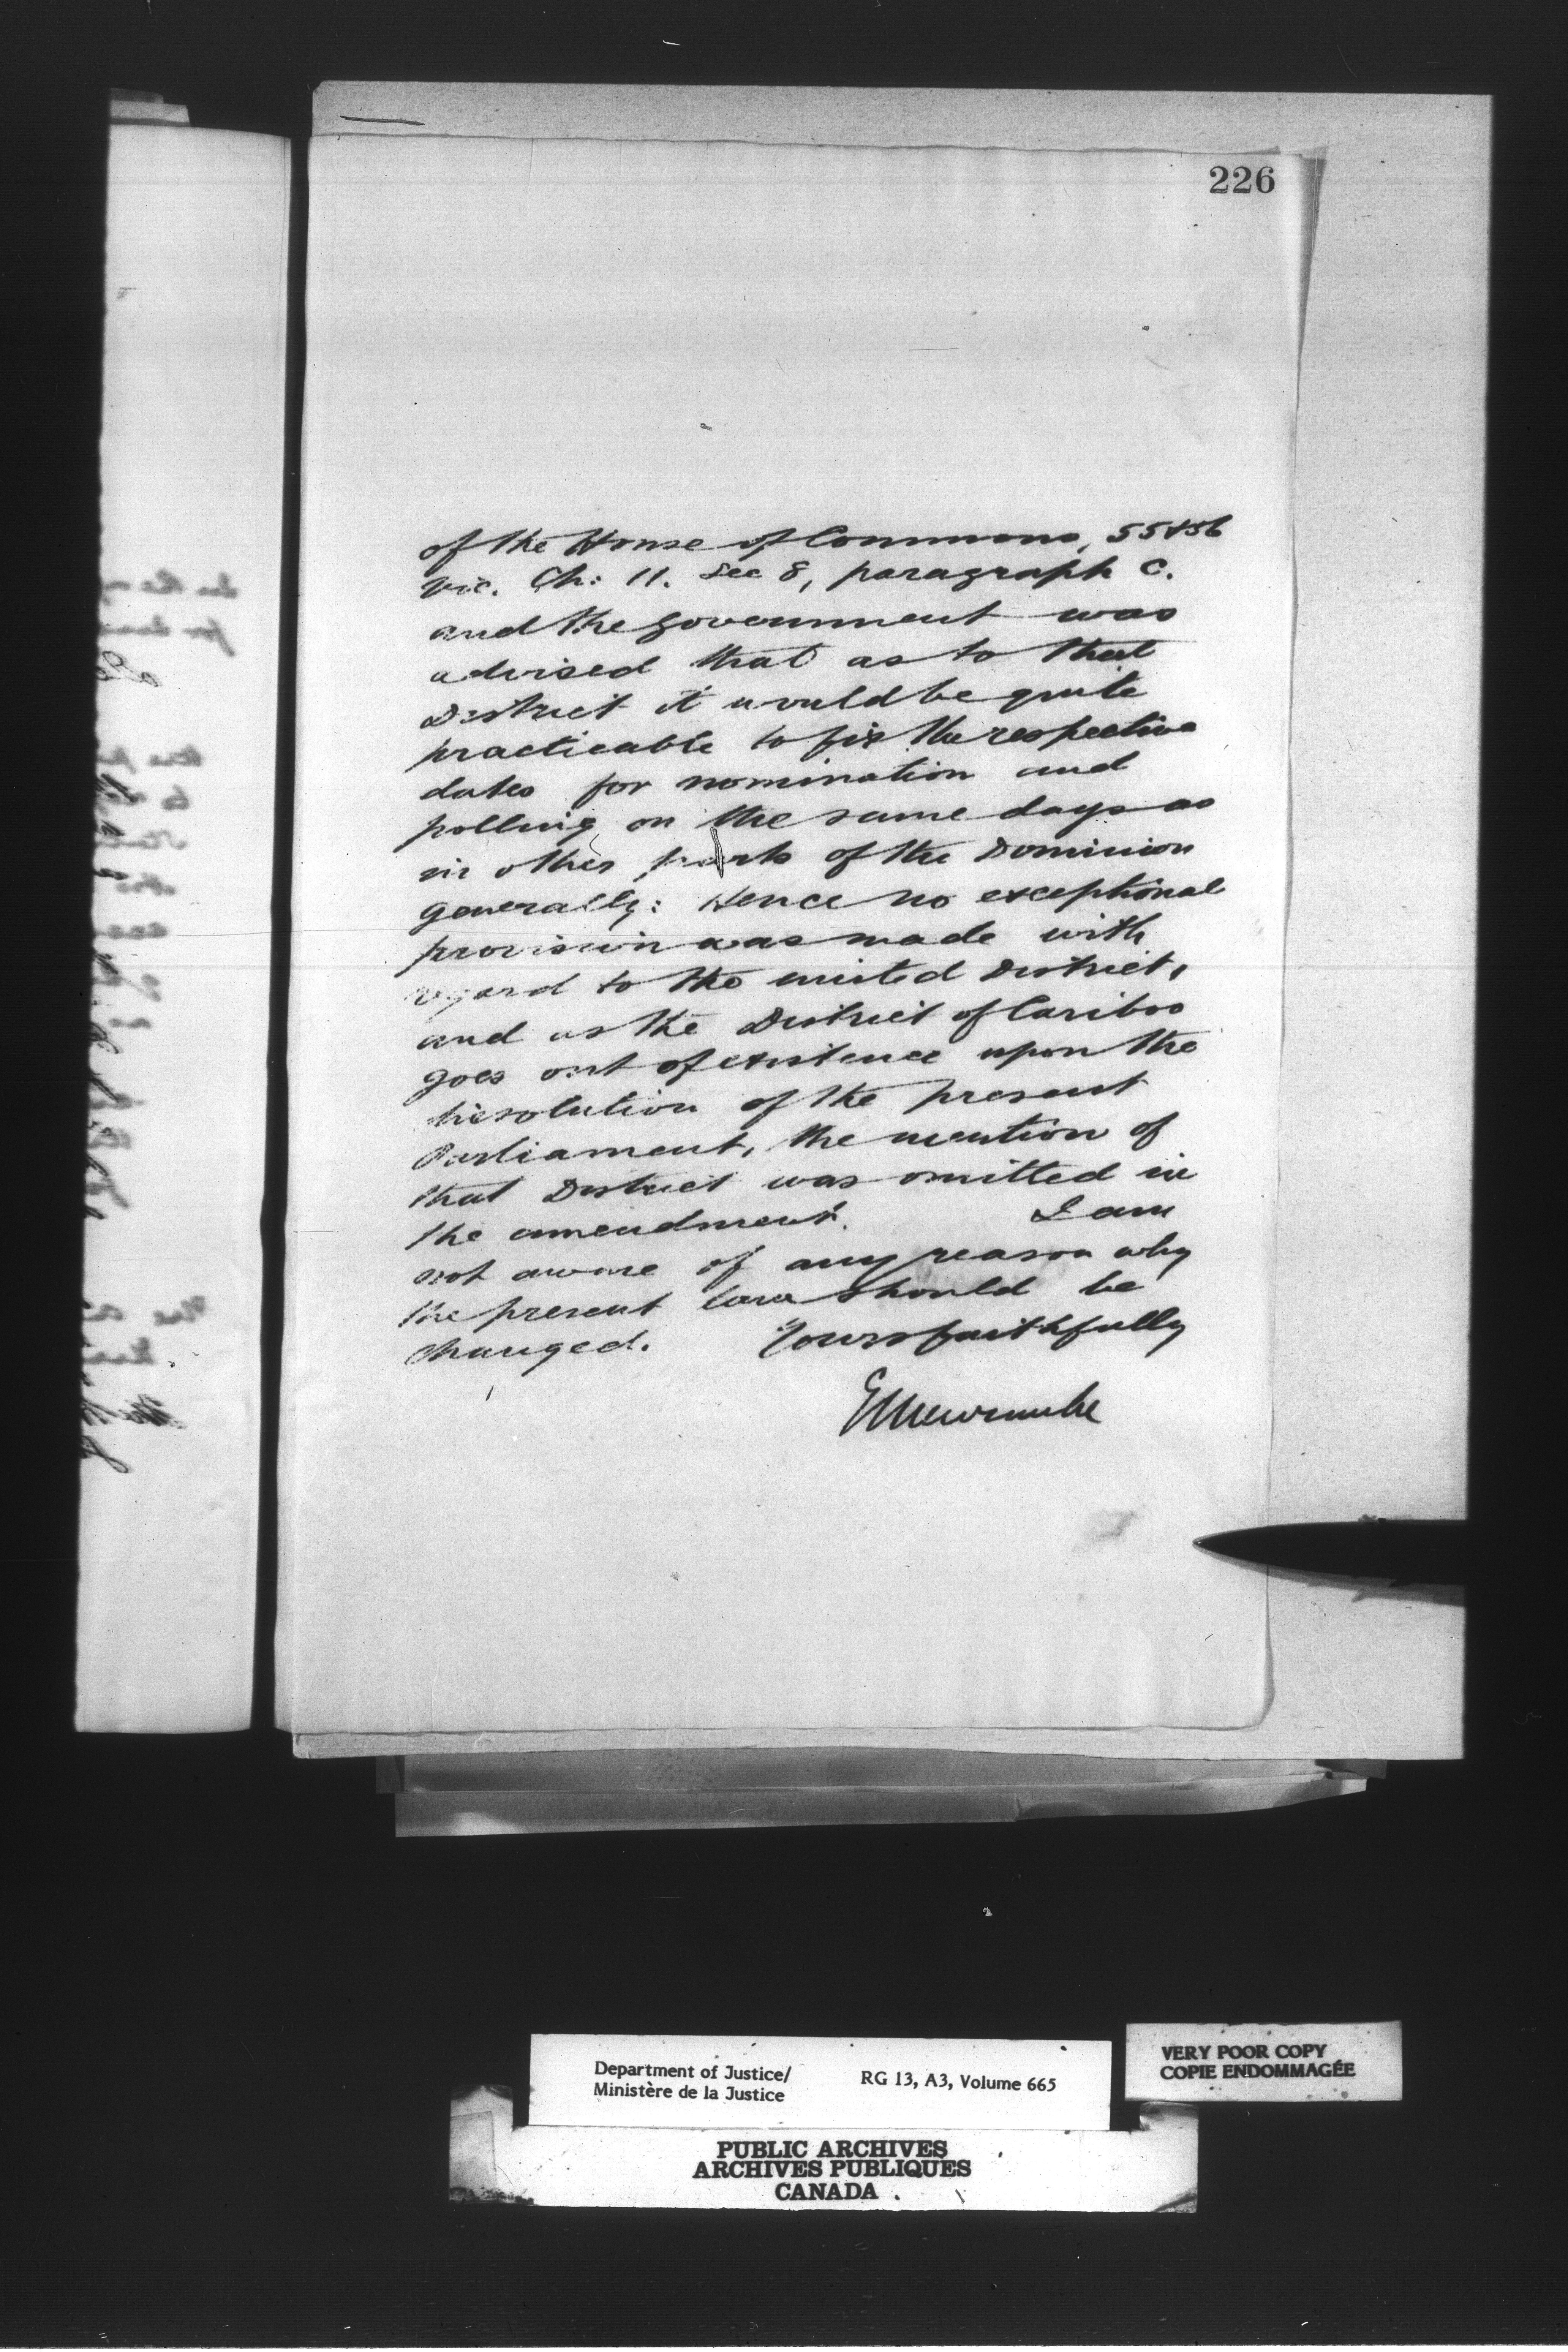 226
of the House of Commons, 55 & 56
Vic. Ch: 11. Sec 8, paragraph C.
and the Government was
advised that as to that
District it would be quite
practicable to fix the respective
dates for nomination and
polling on the same days as
in other parts of the Dominion
generally: Hence no exceptional
provision was made with
regard to the united District,
and as the District of Cariboo
goes out of existence upon the
dissolution of the present
Parliament, the mention of
that District was omitted in
the amendment. I am
not aware of any reason why
the present law should be
changed. Yours faithfully
E L Newcombe
Department of Justice/
Ministère de la Justice
RG 13, A3, Volume 665
VERY POOR COPY
COPIE ENDOMMAGÉE
PUBLIC ARCHIVES
ARCHIVES PUBLIQUES
CANADA